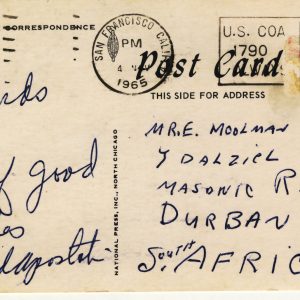 CORRESPONDENCE
SAN FRANCISCO CALIF
PM
4
1965
U.S. COA
1790
Post Card
THIS SIDE FOR ADDRESS
of good
NATIONAL PRESS, INC., NORTH CHICAGO
MR. E. MOOLMAN
7 DALZIEL
MASONIC R
DURBAN
South AFRIC